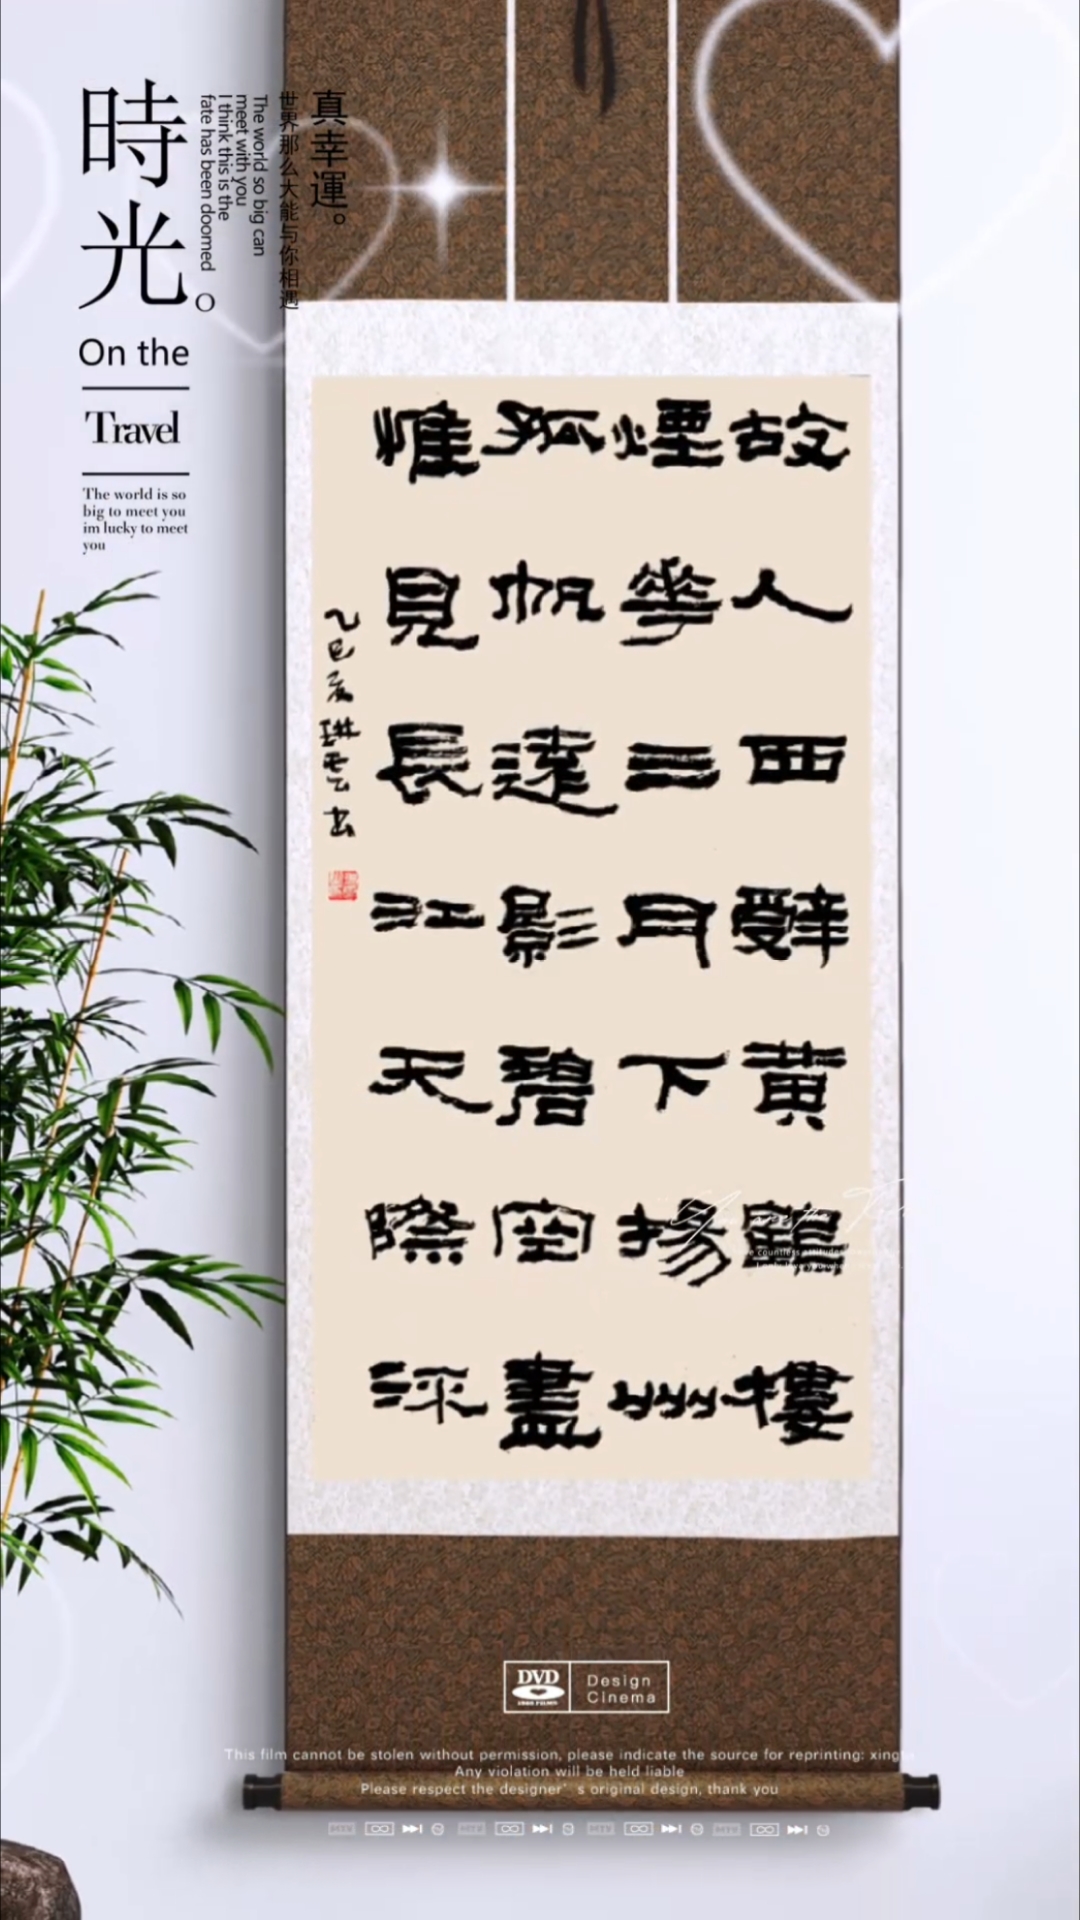 時光。
真幸運。
世界那么大能与你相遇
The world so big can
meet with you
I think this is the
fate has been doomed
On the
Travel
The world is so
big to meet you
im lucky to meet
you
故人西辭黄鶴樓
煙華三月下揚州
孤帆遠影碧空盡
惟見長江天際
乙巳夏琳雲
DVD
Design
Cinema
This film cannot be stolen without permission, please indicate the source for reprinting:
Any violation will be held liable
Please respect the designer's original design, thank you